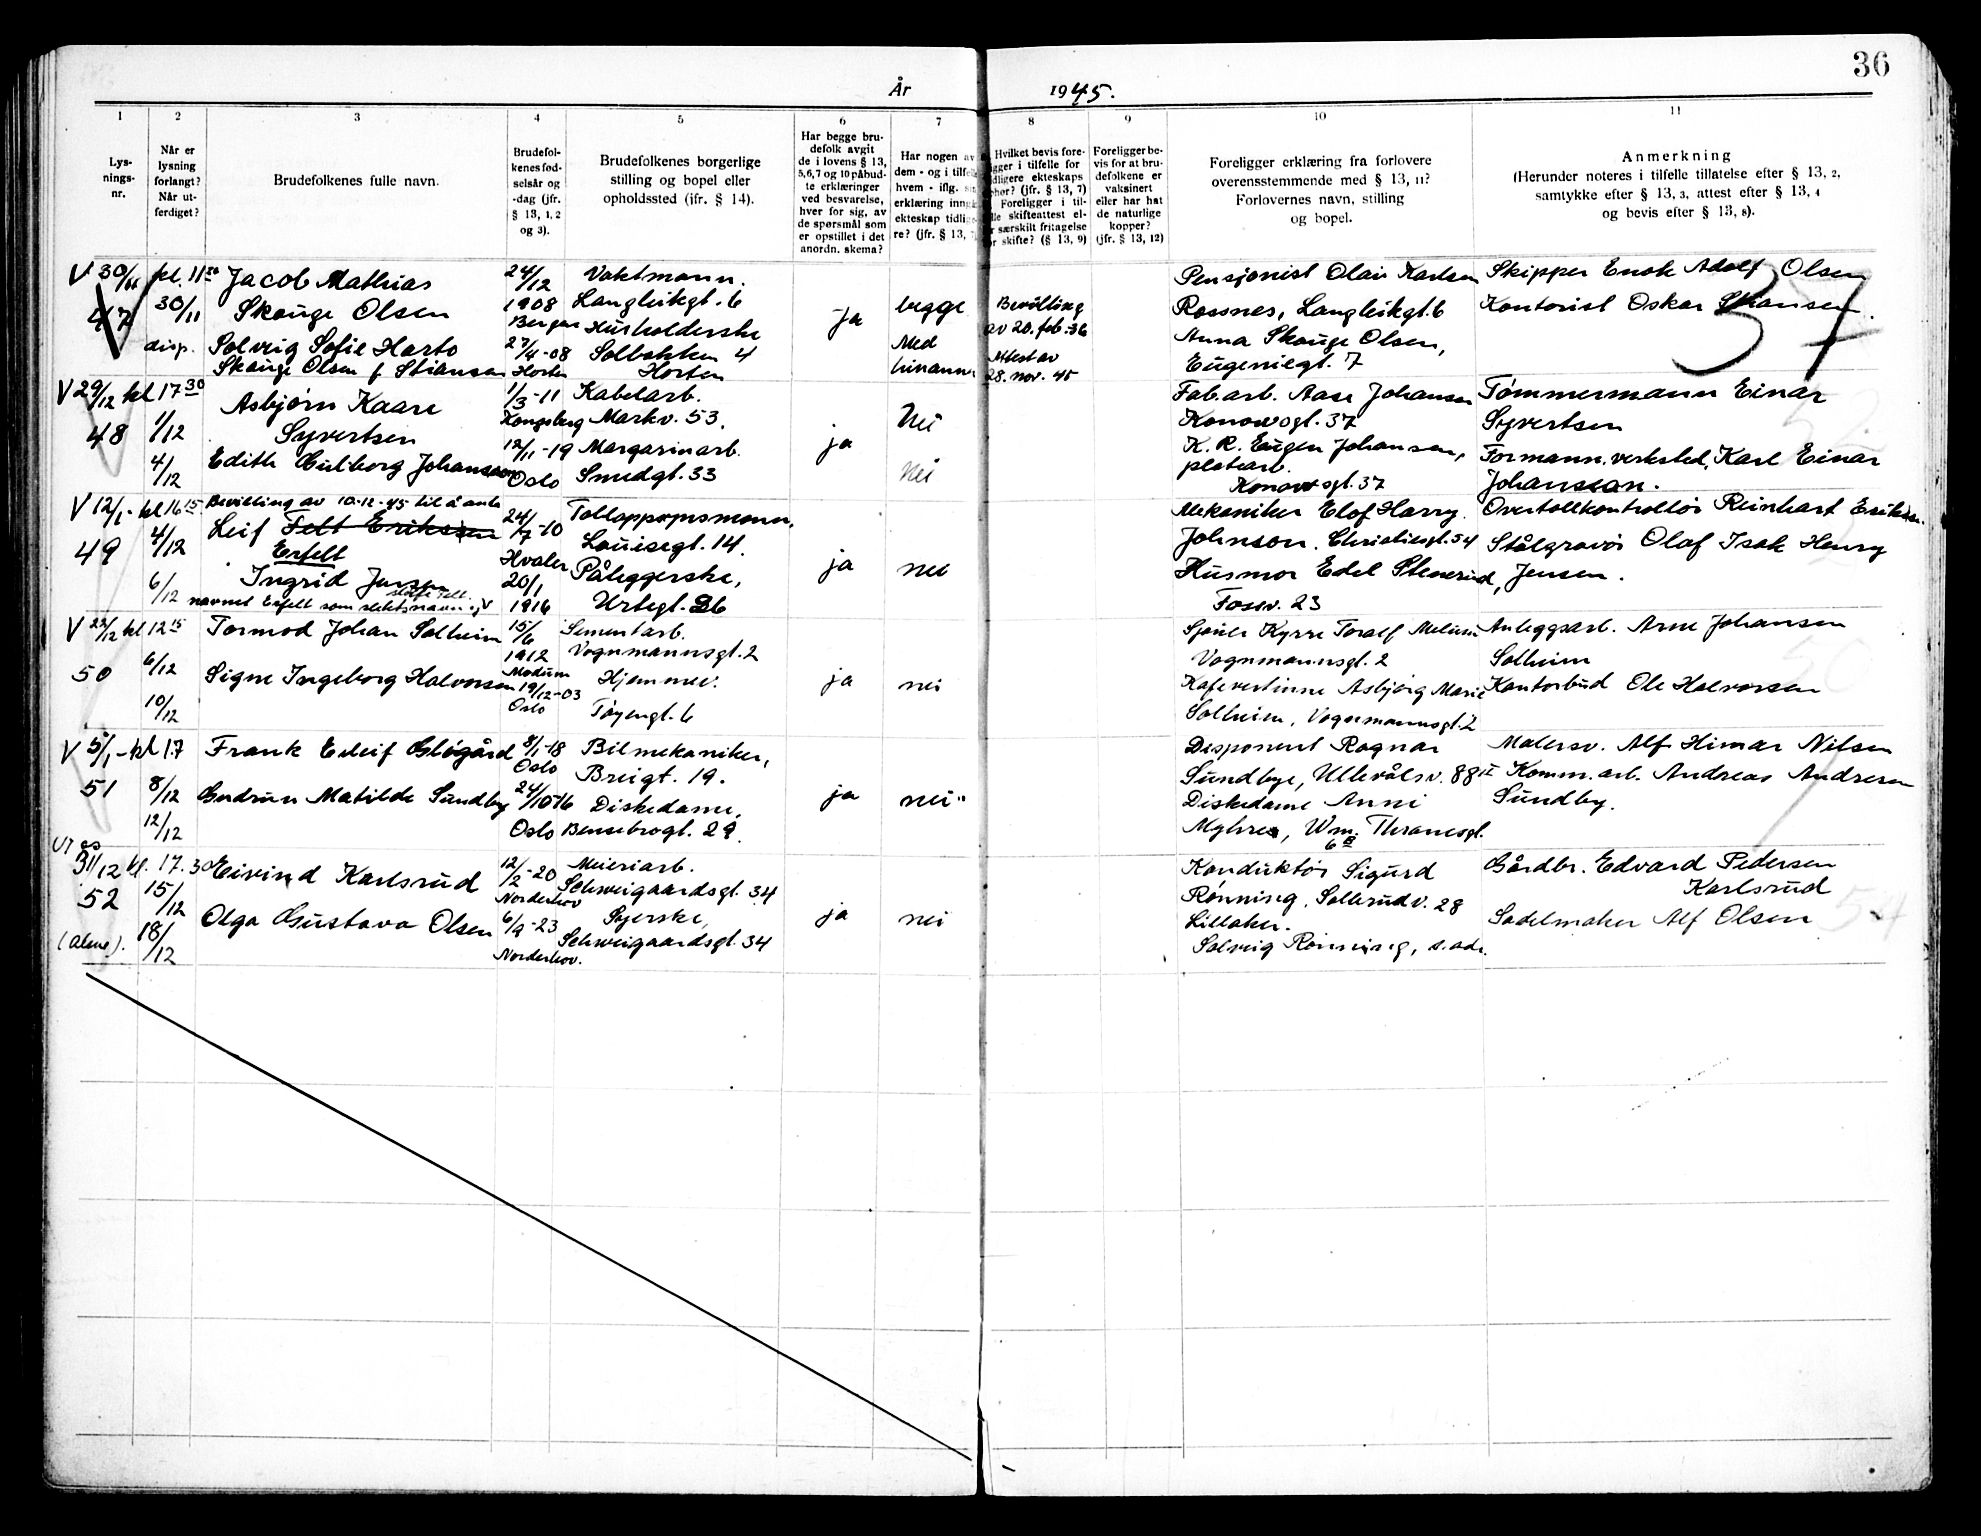 36
År 1945.
1 2 3 4 5 6 7 8 9 10 11
Lys-
nings-
nr.
Når er
lysning
forlangt?
Når ut-
ferdiget?
Brudefolkenes fulle navn.
Brudefol-
kenes fød-
selsår og
-dag (jfr.
§ 13, 1, 2
og 3).
Brudefolkenes borgerlige
stilling og bopel eller
opholdssted (ifr. § 14).
Har begge bru-
defolk avgit
de i lovens § 13,
5,6,7 og 10 påbud-
te erklæringer
ved besvarelse,
hver for sig, av
de spørsmål som
er opstillet i det
anordn. skema?
Har nogen av
dem - og i tilfelle
hvem - iflg.
erklæring inngå
ekteskap tidlig
re? (jfr. § 13,
Hvilket bevis fore-
gger i tilfelle for
dligere ekteskaps
hør? (jfr. § 13, 7)
Foreligger i til-
lle skifteattest el-
r særskilt fritagelse
or skifte? (§ 13, 9)
Foreligger be-
vis for at bru-
defolkene er
vaksinert
eller har hat
de naturlige
kopper?
(jfr. § 13, 12)
Foreligger erklæring fra forlovere
overensstemmende med § 13, 11?
Forlovernes navn, stilling
og bopel.
Anmerkning
(Herunder noteres i tilfelle tillatelse efter § 13, 2,
samtykke efter § 13, 3, attest efter § 13, 4
og bevis efter § 13, 8).
V 30/11 kl. 11 30
47
30/11
disp.
Jacob Mathias
Skauge Olsen
Solveig Sofie Harto
Skauge Olsen f Stiansen
24/12
1908
Bergen
27/4-08
Horten
Vaktmann.
Langleikgt. 6
Husholderske
Solbakken 4
Horten
ja
begge
Med
hinannen
Bevilling
av 20. feb. 36
Attest av
28. nov. 45
Pensjonist Olav Karlsen
Rossnes, Langleikgt. 6
Anna Skauge Olsen,
Eugeniegt. 7
Skipper Enok Adolf Olsen
Kontorist Oskar Stiansen.
37
V 29/12 kl 17 30
48
1/12
4/12
Asbjørn Kaare
Syvertsen
Edith Hulborg Johansson
1/3-11
Kongsberg
12/11-19
Oslo
Kabelarb.
Markv. 53.
Margarinarb.
Smedgt. 33
ja
Nei
Nei
Fab.arb. Aase Johansen
Konowsgt. 37
K. R. Eugen Johansen,
platearb.
Konowsgt. 37
Tømmermann Einar
Syvertsen
Formann. verksted, Karl Einar
Johansson.
V 12/1 - kl 16 15
49
4/12
6/12
Bevilling av 10-12-45 til å anta
Leif Felt Eriksen
Erfelt
Ingrid Jensen
navnet Erfelt som slektsnavn
24/7-10
Hvaler
20/1
1916
Tolloppsynsmann,
Louisegt. 14.
Påleggerske,
Urtegt. 26
ja
nei
Mekaniker Elof Harry
Johnson. Christiesgt. 54
Husmor Edel Stenerud,
Fossv. 23
Overtollkontrollør Reinhart Eriksen.
Stålgravør Olaf Isak Henry
Jensen.
V 22/12 kl 12 15
50
6/12
10/12
Tormod Johan Solheim
Signe Ingeborg Halvorsen
15/6
1912
Modum
19/12-03
Oslo
Sementarb.
Vognmannsgt. 2
Hjemmev.
Tøyengt. 6
ja
nei
Sjauer Kyrre Toralf Melum
Vognmannsgt. 2
Kafevertinne Asbjørg Marie
Solheim, Vognmannsgt. 2
Anleggsarb. Arne Johansen
Solheim
Kontorbud Ole Halvorsen
V 5/1 - kl 17
51
8/12
12/12
Frank Erleif Gløgård
Gudrun Matilde Sundby
8/1-18
Oslo
24/10 16
Oslo
Bilmekaniker,
Breigt. 19.
Diskedame,
Bensebrogt. 29.
ja
nei
Disponent Ragnar
Sundbye, Ullevålsv. 88 II
Diskedame Anni
Myhre, Wm. Thranesgt.
6 B
Malersv. Alf Himar Nilsen
Komm. arb. Andreas Andresen
Sundby.
31/12 kl. 17.30
52
(alene).
15/12
18/12
Eivind Karlsrud
Olga Gustava Olsen
12/2-20
Norderhov
6/9-23
Norderhov.
Meieriarb.
Schweigaardsgt. 34
Syerske,
Schweigaardsgt. 34
ja
nei
Konduktør Sigurd
Rønning, Sollerudv. 28
Lilleaker.
Solveig Rønning, s. adr.
Gårdbr. Edvard Pedersen
Karlsrud
Sadelmaker Alf Olsen